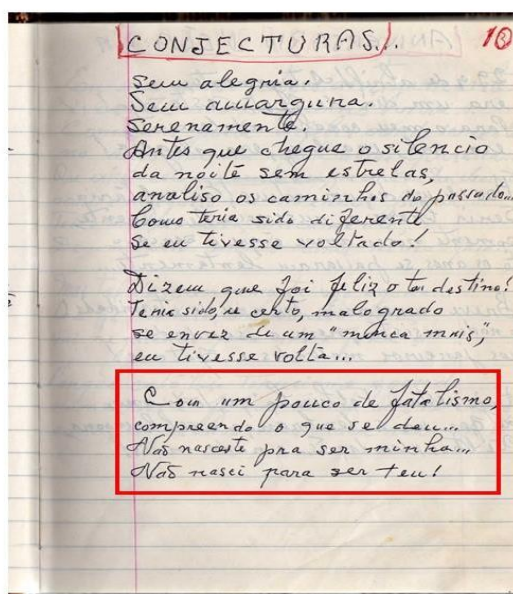 CONJECTURAS... 13
Sem alegria.
Sem amargura.
Serenamente.
Antes que chegue o silencio
da noite sem estrelas,
analiso os caminhos do passado...
Como teria sido diferente
se eu tivesse voltado!
Dizem que foi feliz o teu destino!
Teria sido, ao certo, malogrado
se envez de um "nunca mais",
eu tivesse volta...
Com um pouco de fatalismo,
compreendo o que se deu...
Não nasceste pra ser minha...
Não nasci para ser teu!